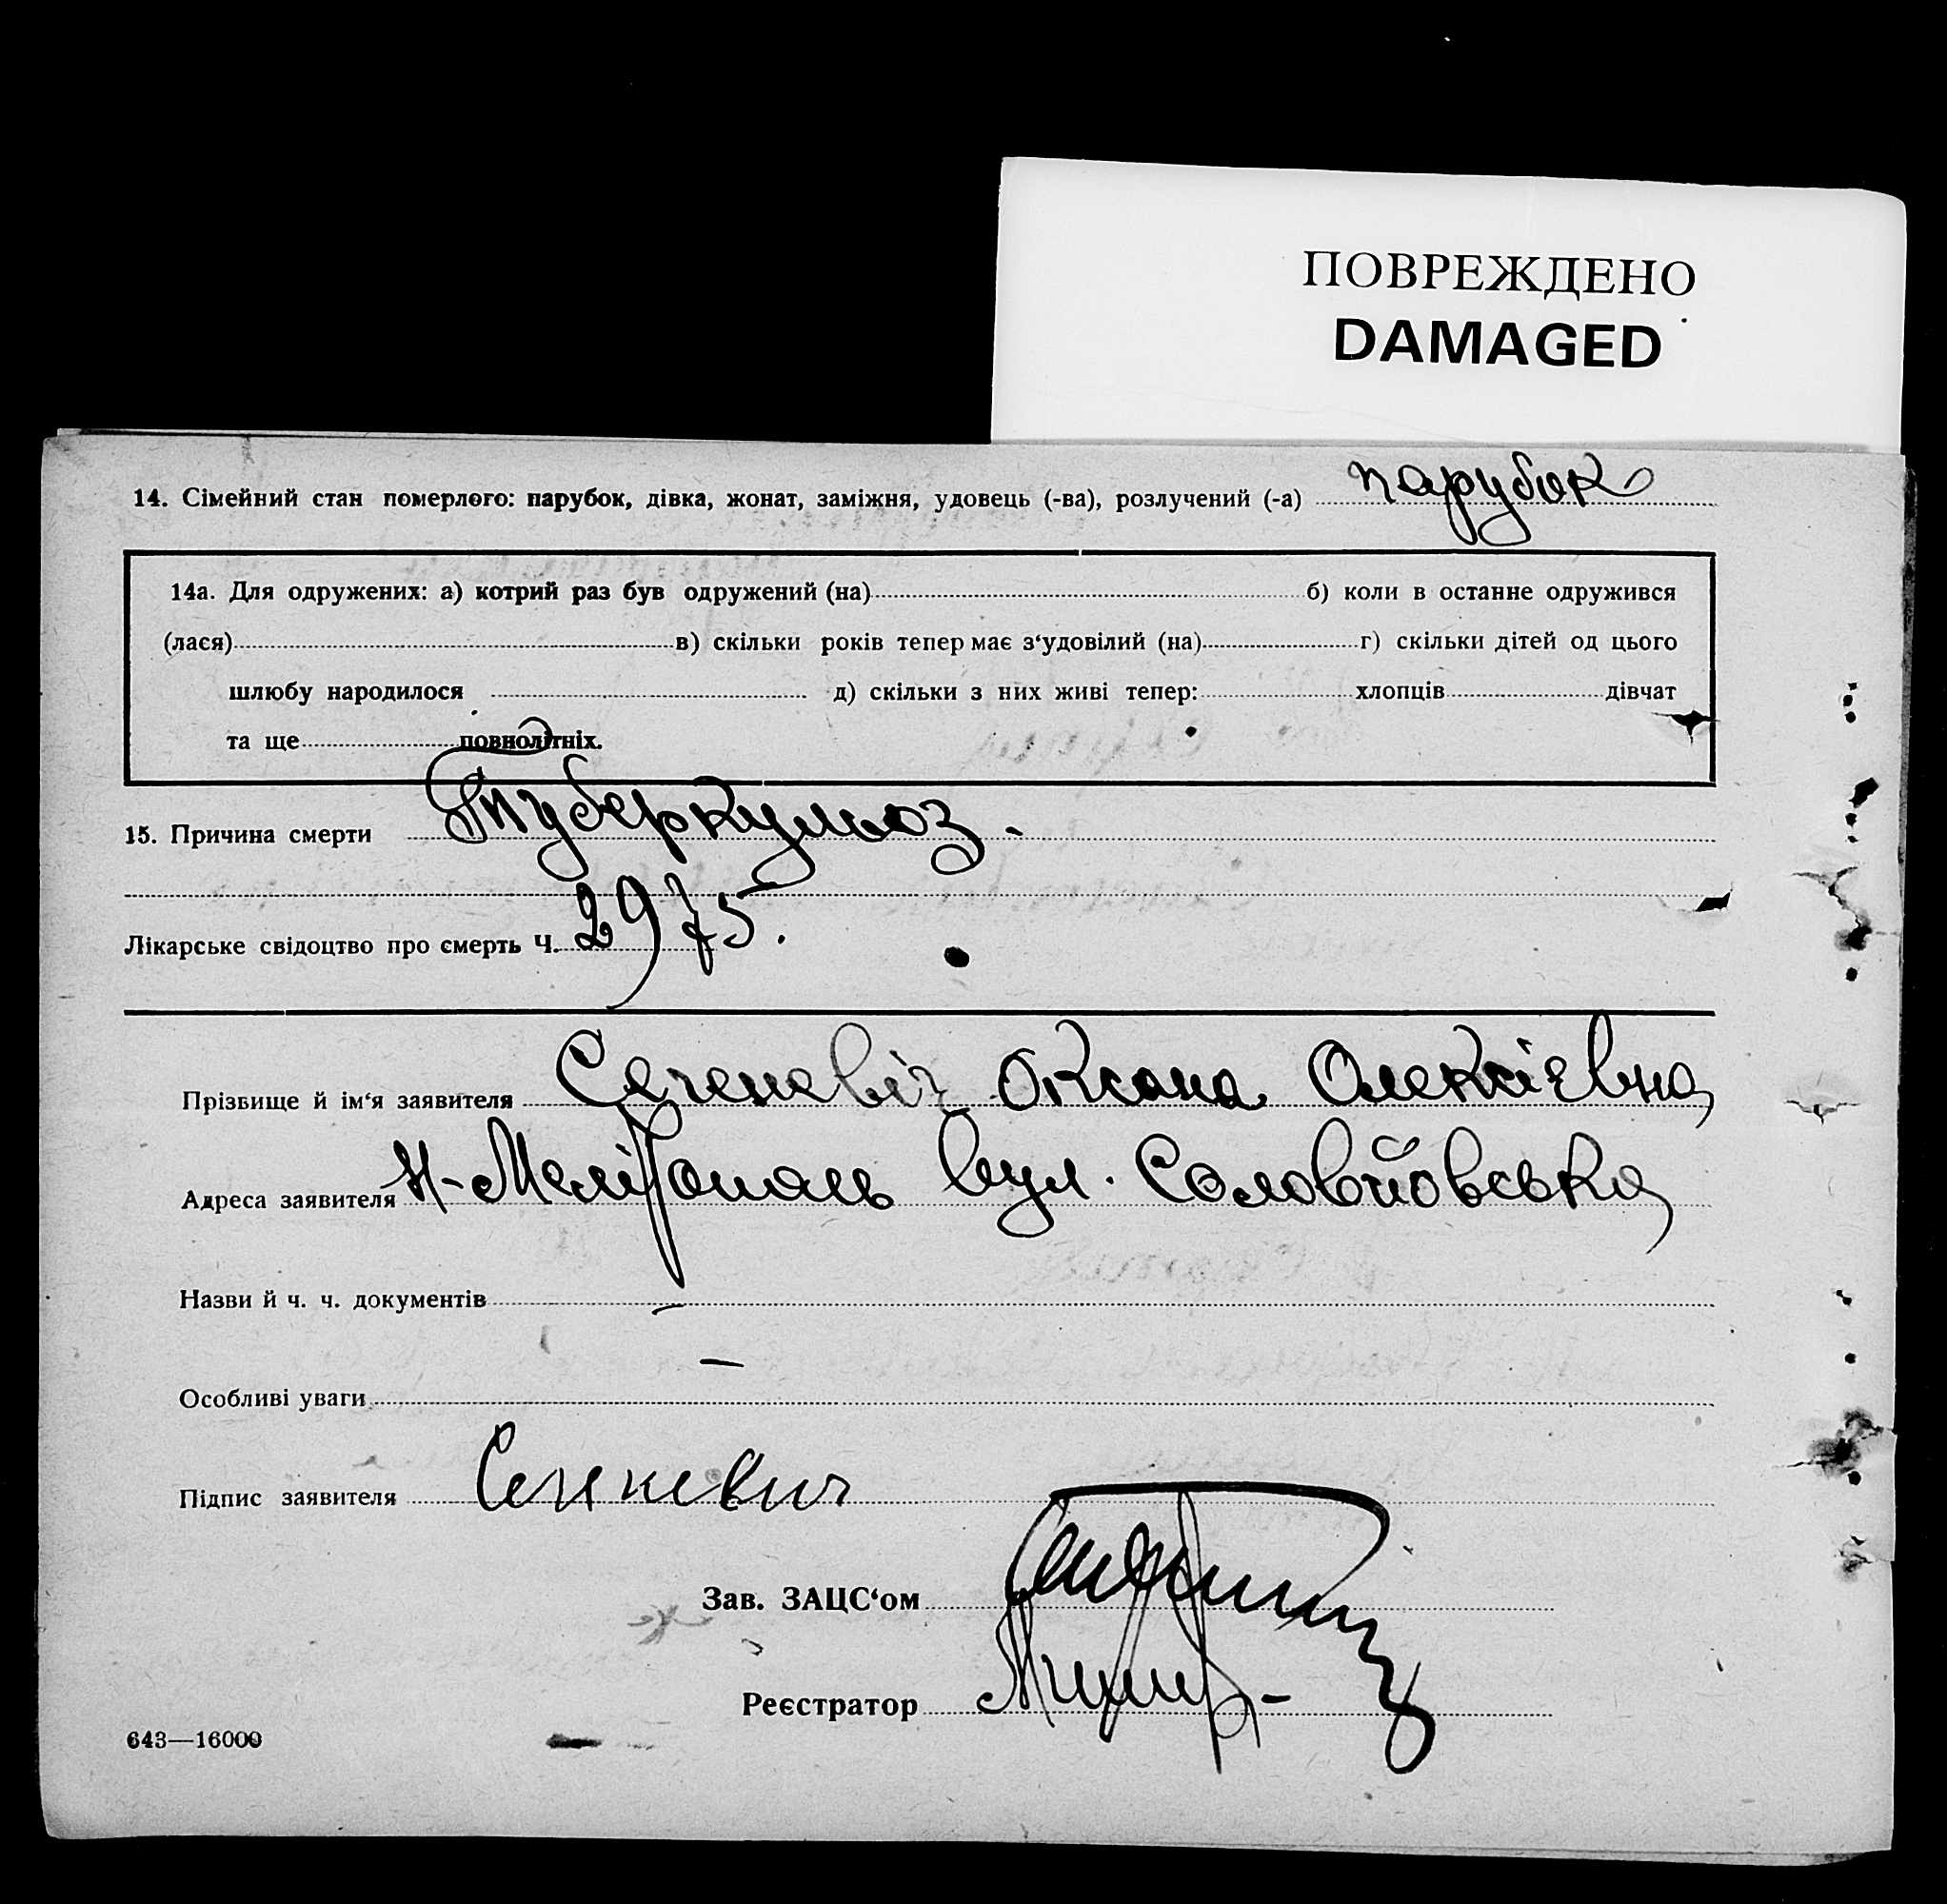 ПОВРЕЖДЕНО
DAMAGED
14. Сімейний стан померлого: парубок, дівка, жонат, заміжня, удовець (-ва), розлучений (-а) парубок
14а. Для одружених: а) котрий раз був одружений (на) б) коли в останне одружився
(лася) в) скільки років тепер має з‘удовілий (на) г) скільки дітей од цього
шлюбу народилося д) скільки з них живі тепер: хлопців дівчат
та ще повнолітніх.
15. Причина смерти Туберкульоз.
Лікарське свідоцтво про смерть Ч. 2975.
Прізвище й ім‘я заявителя Оксана Олексієвна
Адреса заявителя Н-Мелітополь вул. Соловйовська
Назви й ч. ч. документів —
Особливі уваги —
Підпис заявителя
Зав. ЗАЦС‘ом
Реєстратор
643—16000